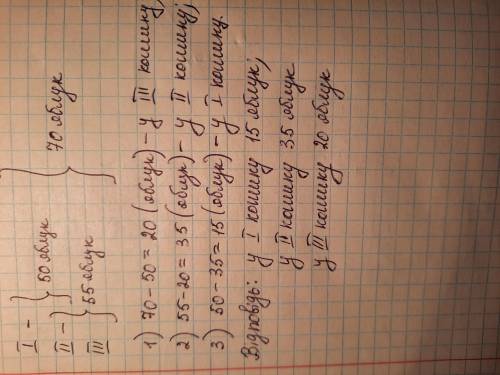 I - } 50 яблук } 70 яблук
II - } 55 яблук
III
1) 70 - 50 = 20 (яблук) - у III кошику;
2) 55 - 20 = 35 (яблук) - у II кошику;
3) 50 - 35 = 15 (яблук) - у I кошику.
Відповідь: у I кошику 15 яблук;
у II кошику 35 яблук
у III кошику 20 яблук